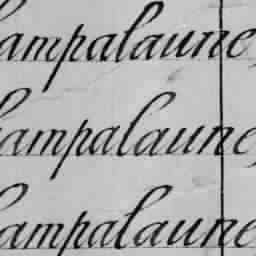 hampalaune,
hampalaune,
hampalaune